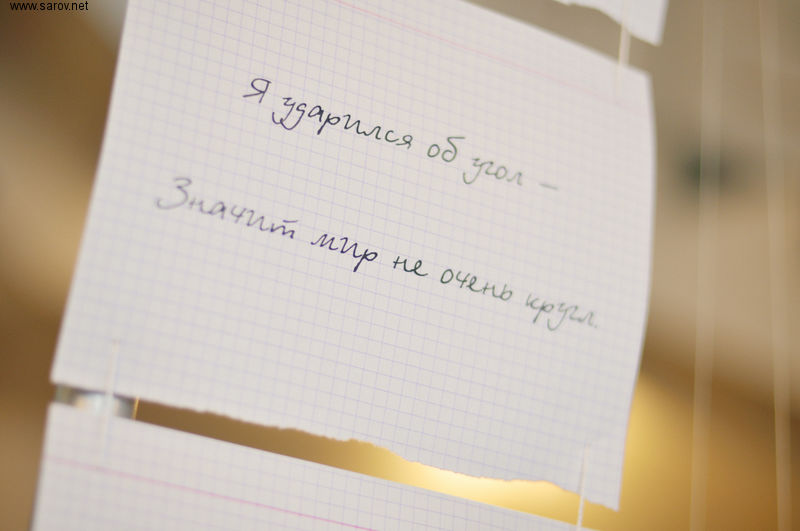 www.sarov.net
Я ударился об угол –
Значит мир не очень кругл.